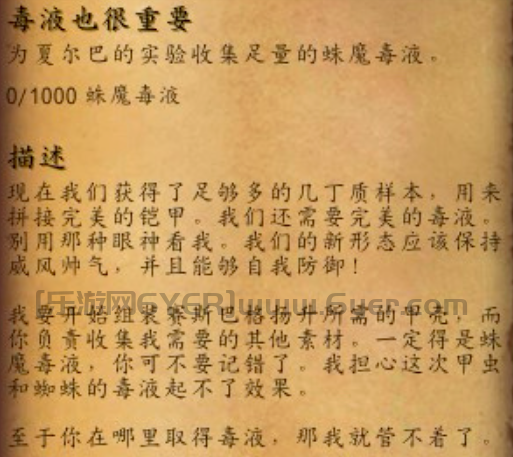 毒液也很重要
为夏尔巴的实验收集足量的蛛魔毒液。
0/1000 蛛魔毒液
描述
现在我们获得了足够多的几丁质样本，用来
拼接完美的铠甲。我们还需要完美的毒液。
别用那种眼神看我。我们的新形态应该保持
威风帅气，并且能够自我防御！
[乐游网6YER]www.6yer.com
我要开始组装赛斯巴格扬升所需的甲壳，而
你负责收集我需要的其他素材。一定得是蛛
魔毒液，你可不要记错了。我担心这次甲虫
和蜘蛛的毒液起不了效果。
至于你在哪里取得毒液，那我就管不着了。